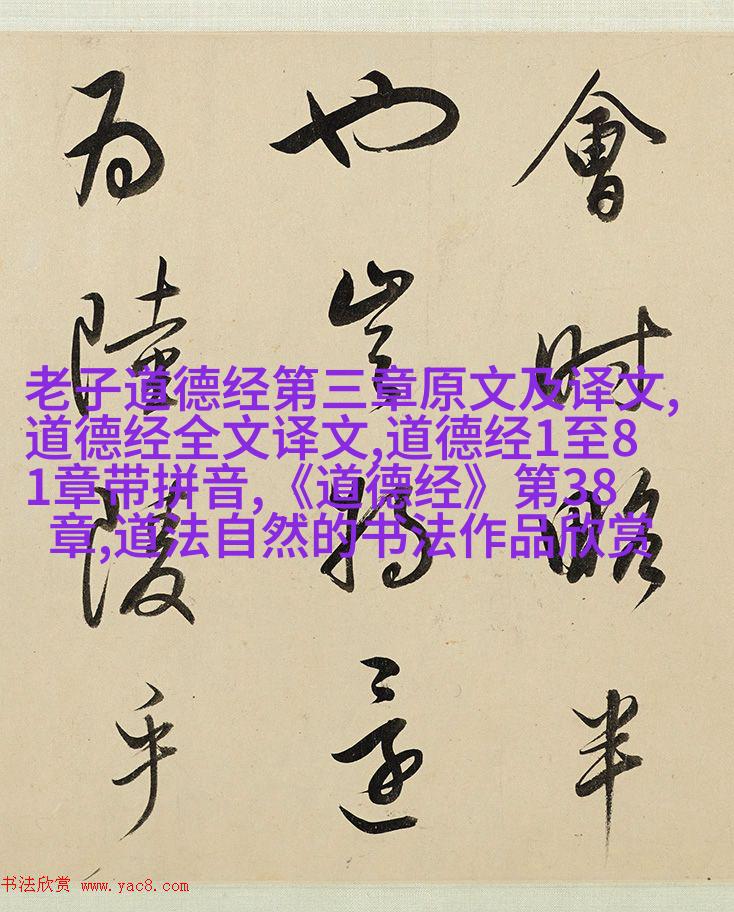 會時略半
也豈將還
為陸陵乎
老子道德经第三章原文及译文,
道德经全文译文,道德经1至8
1章带拼音,《道德经》第38
章,道法自然的书法作品欣赏
书法欣赏 www.yac8.com